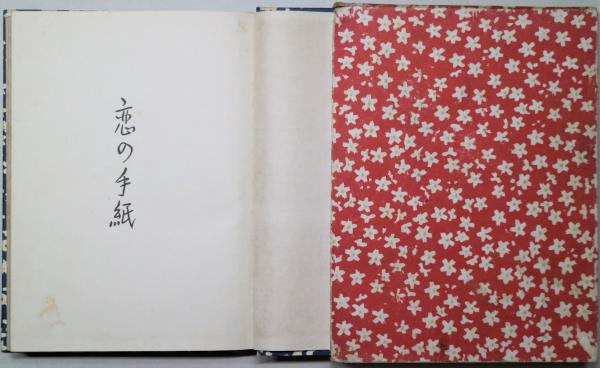 恋の手紙